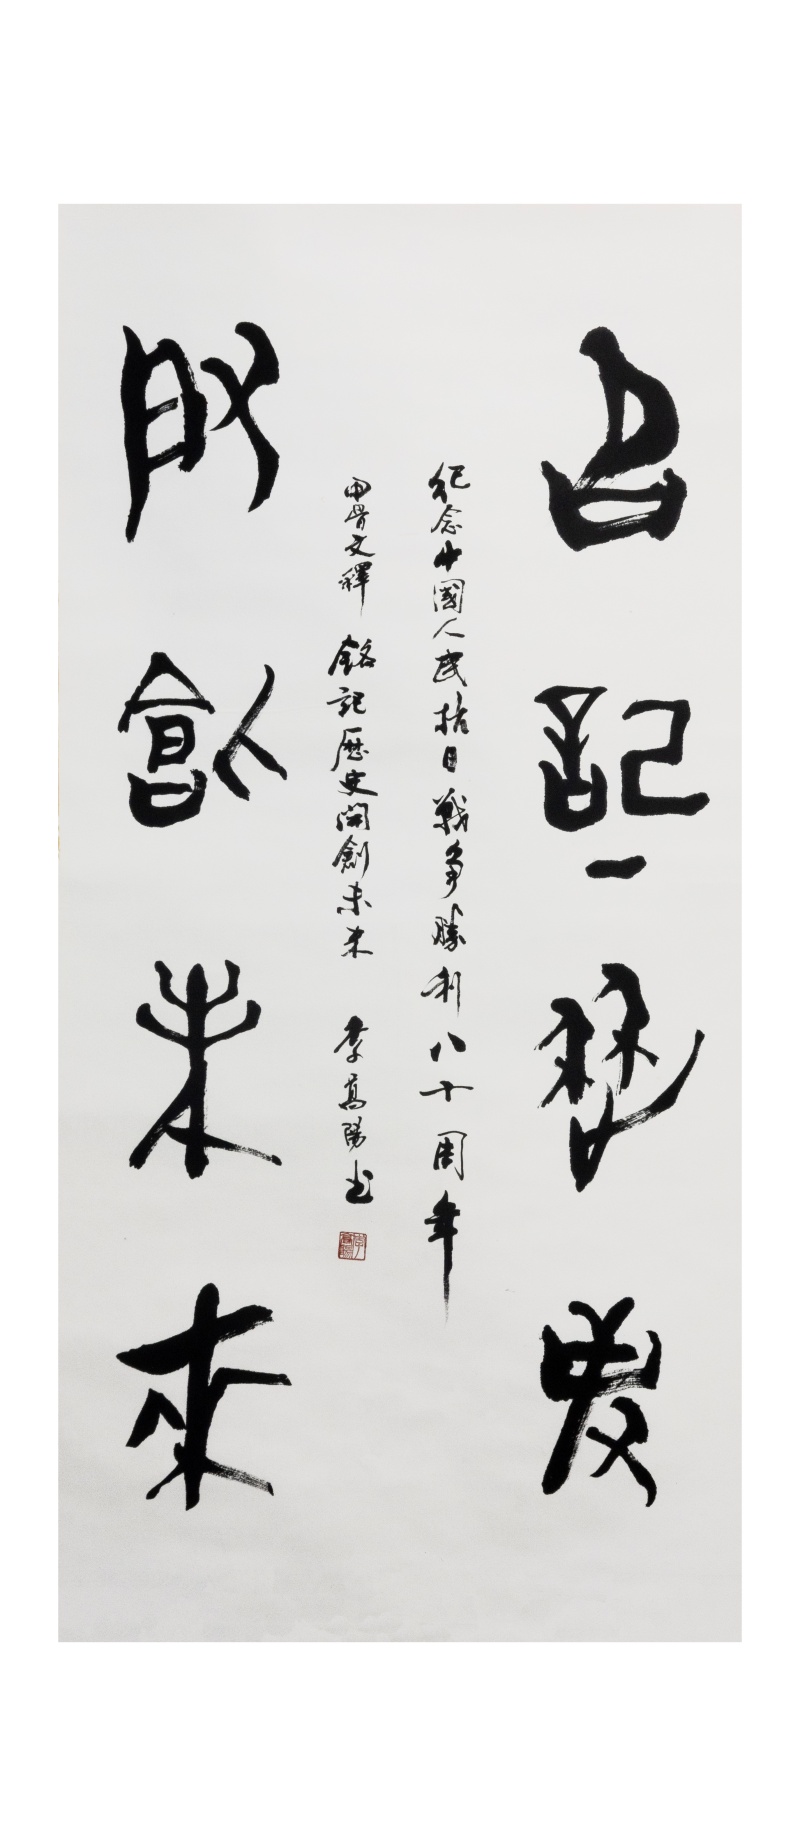 名記歷史
啟創未來
紀念中國人民抗日戰爭勝利八十周年
甲骨文釋 銘記歷史開創未来 李高陽书